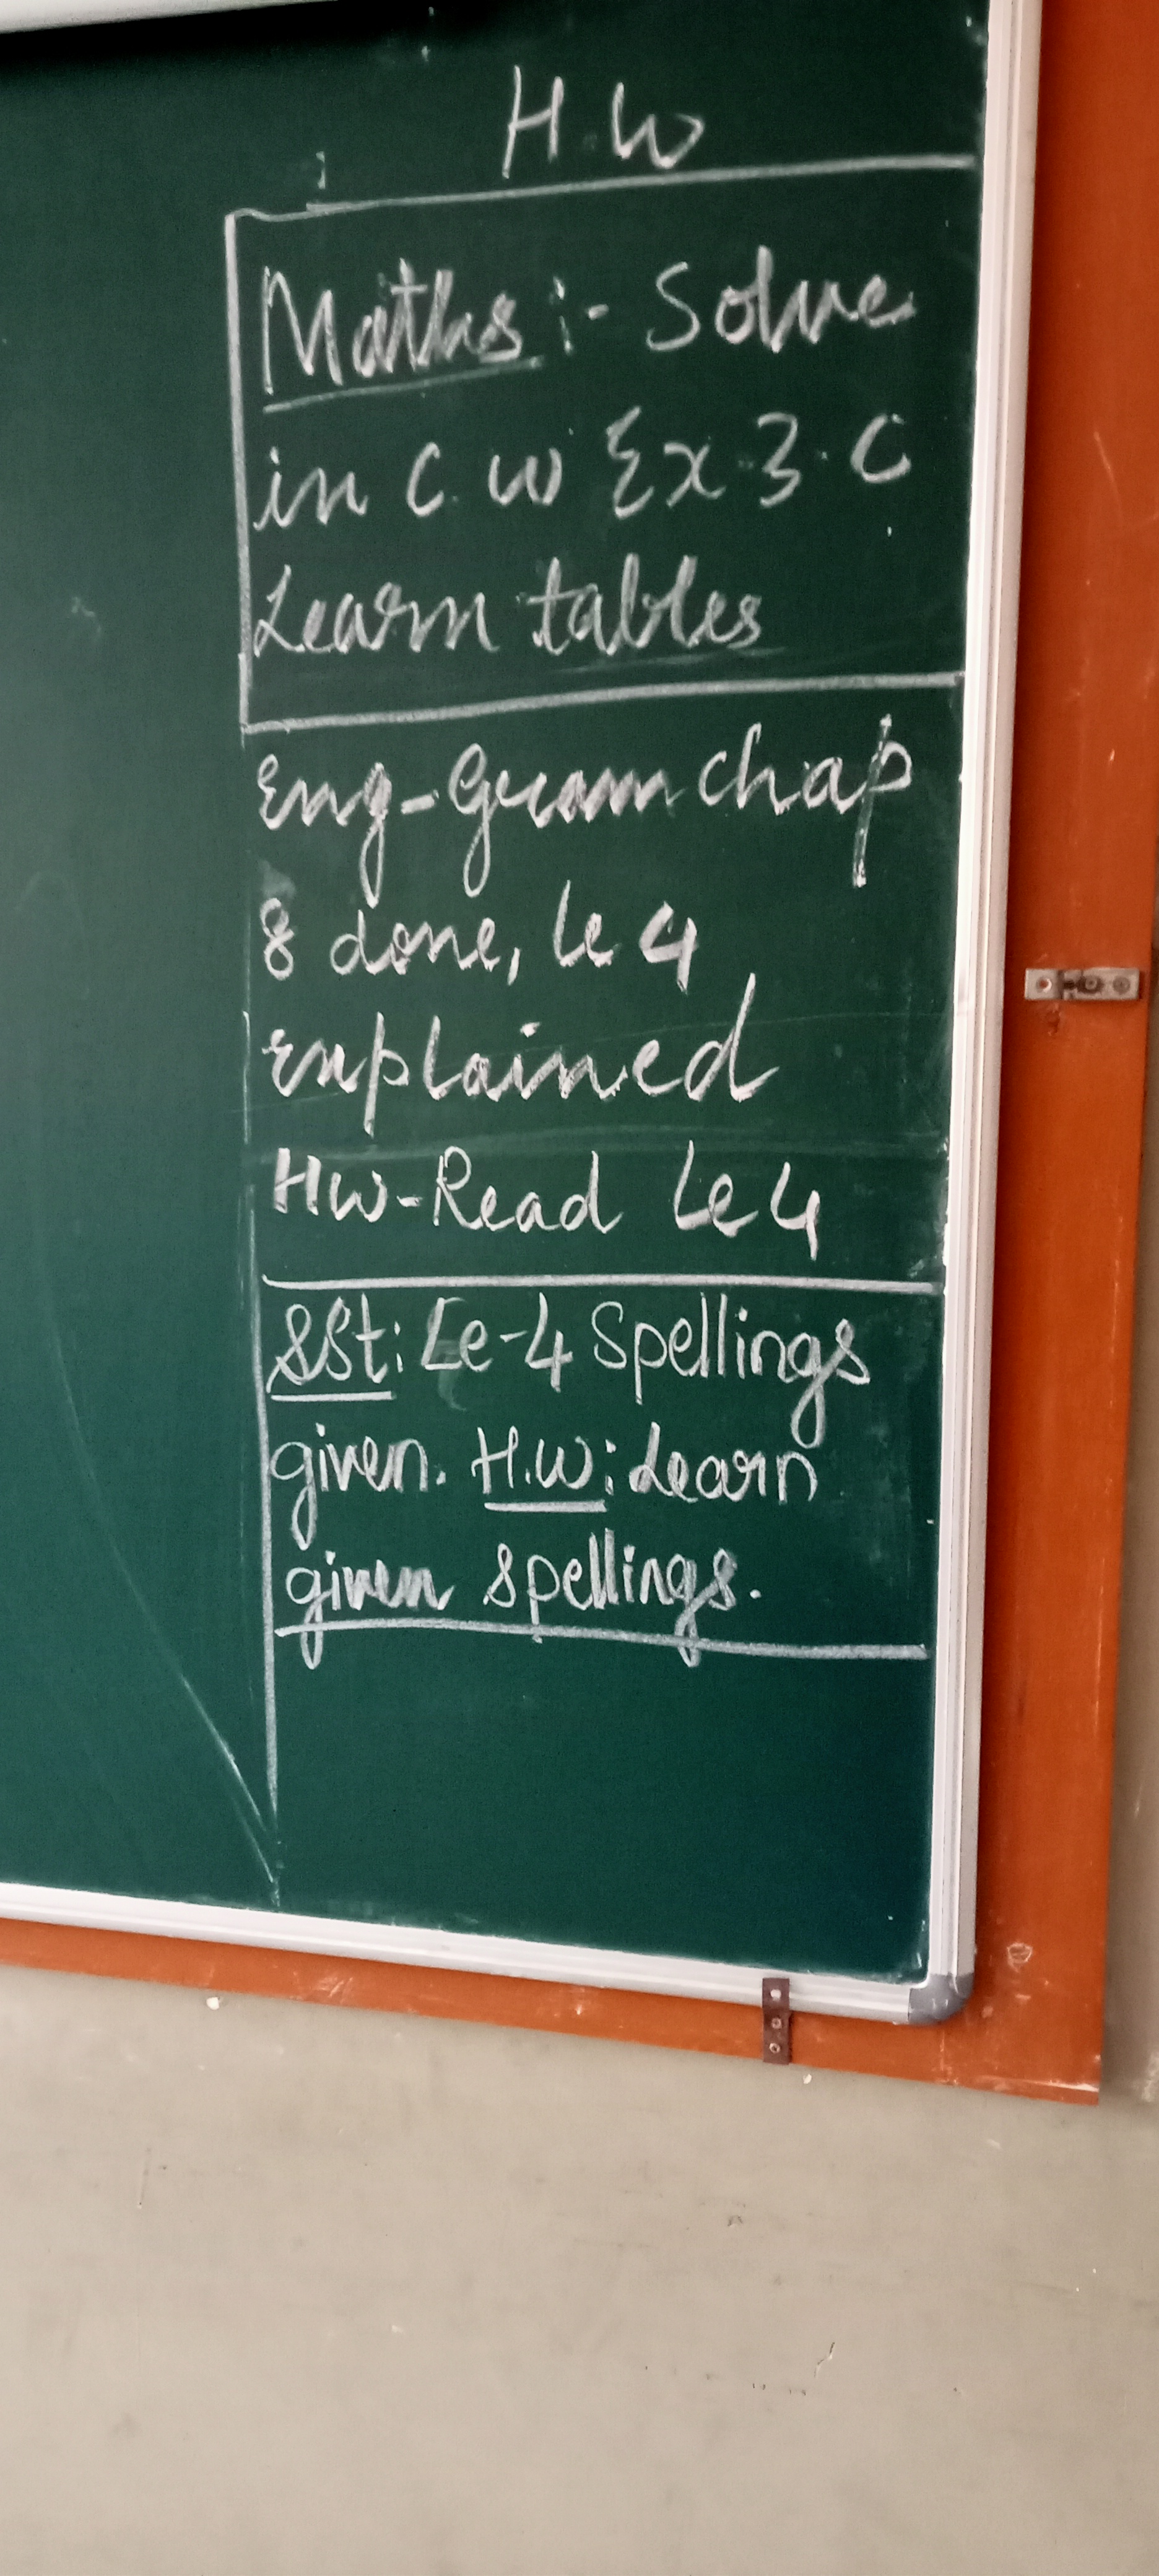 H.W
Maths :- Solve
in C.W Ex 3.C
Learn tables
Eng-Gram chap
8 done, le 4
explained
HW-Read Le 4
SSt: Le-4 Spellings
given. H.W: Learn
given spellings.